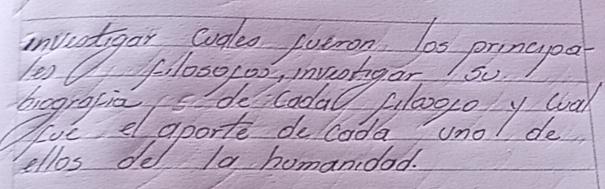 investigar cuales fueron los principa-
les filosofos, investigar su
biografia s de cada filosofo y cual
fue el aporte de cada uno de
ellos del la humanidad.